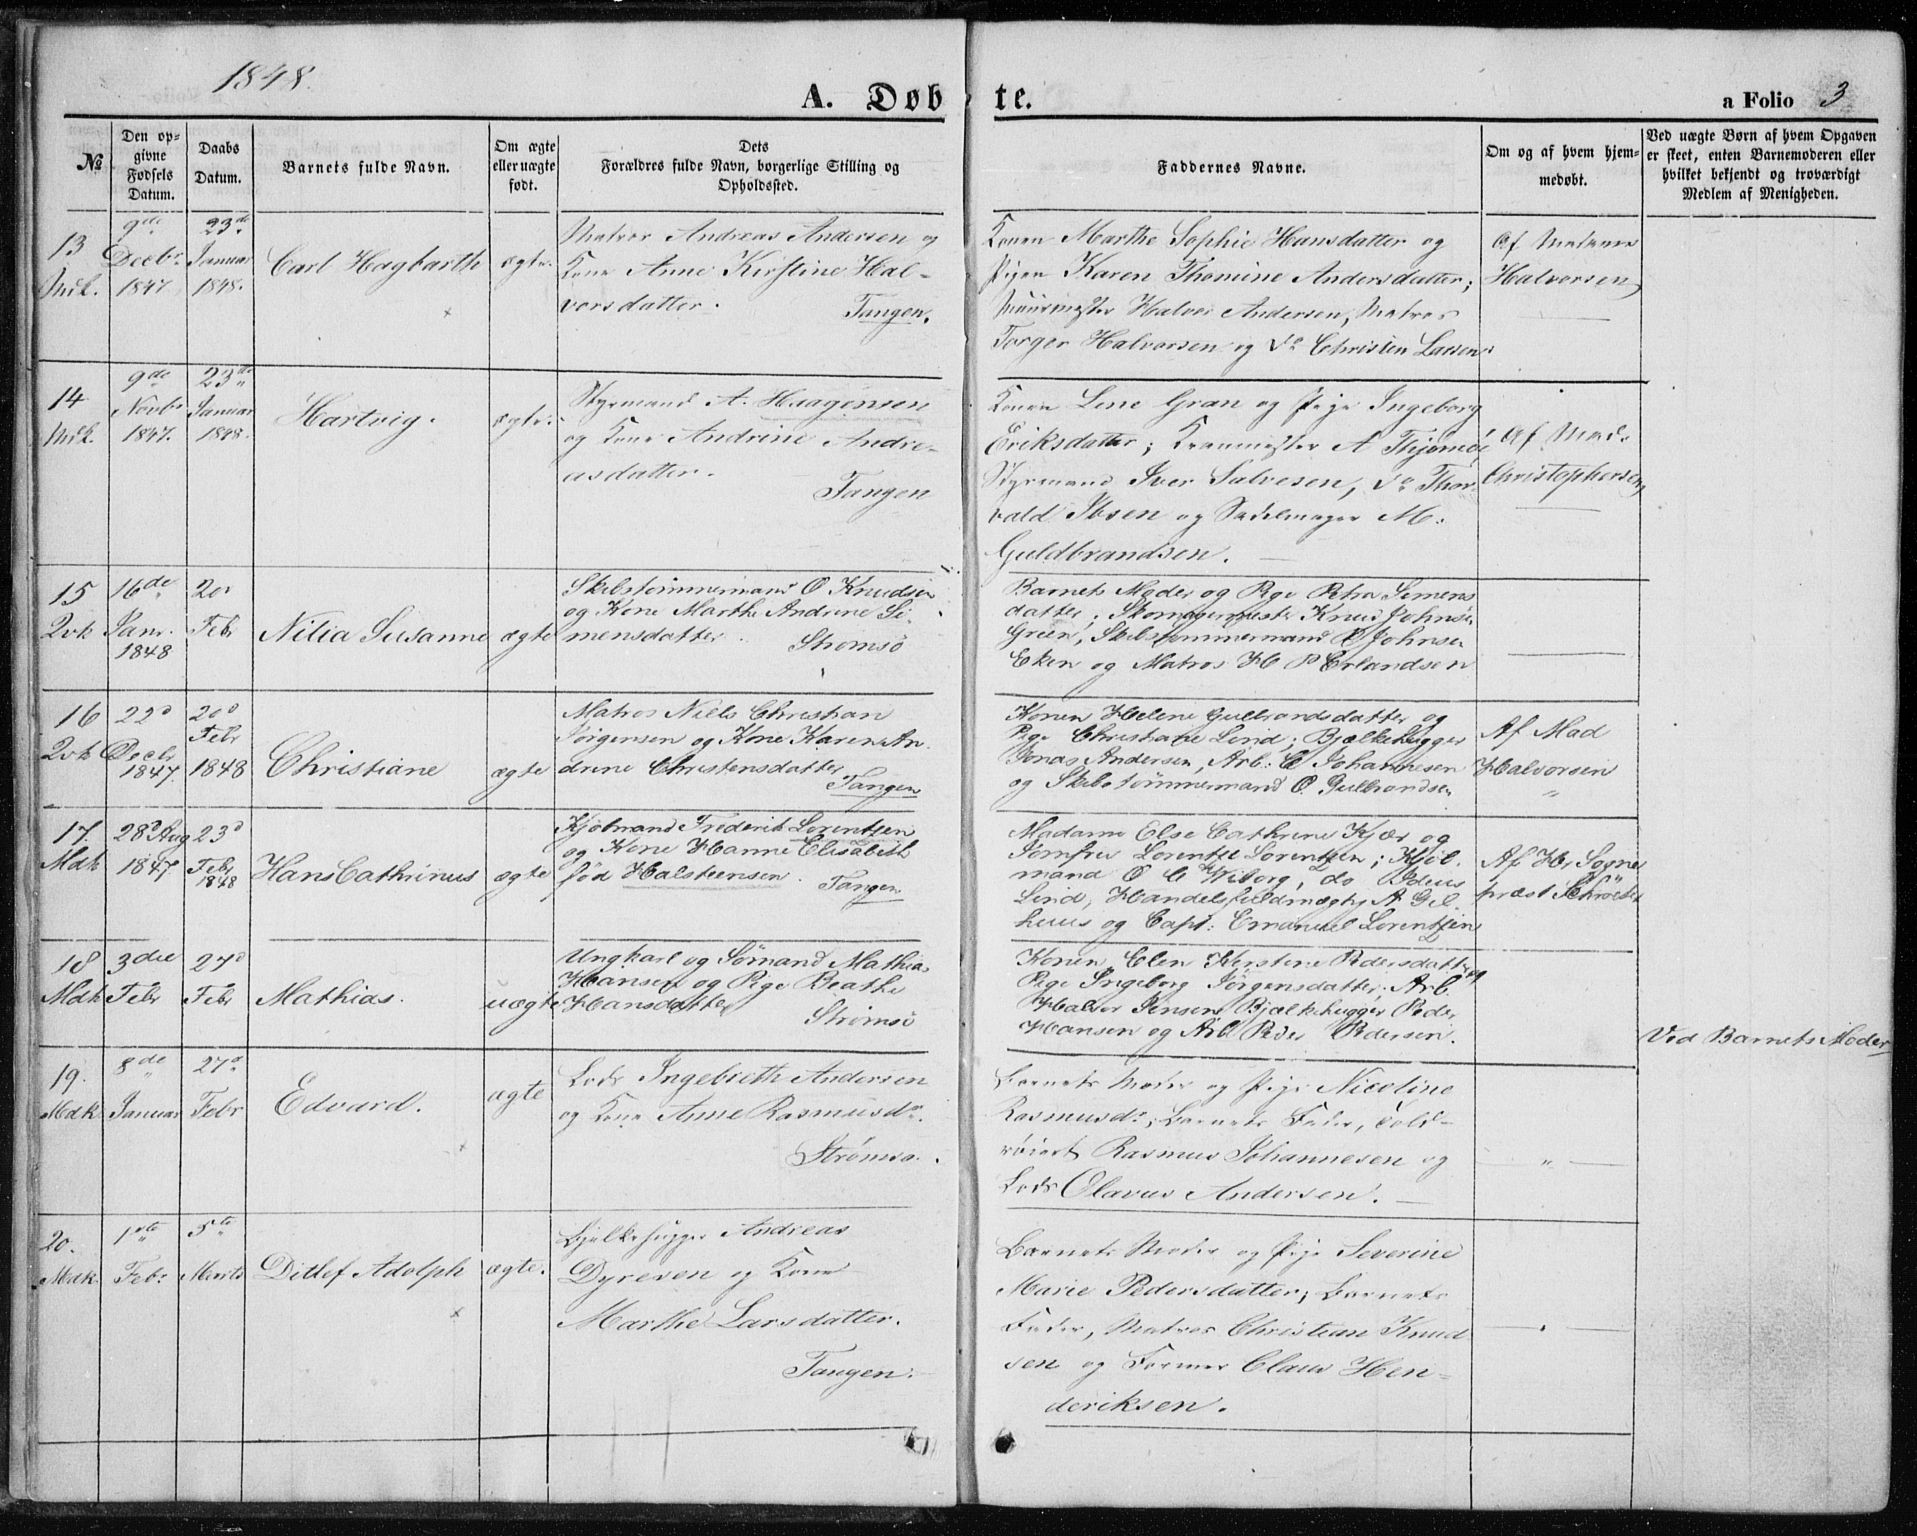 1848.
A. Døbte.
a Folio 3
No
Den opgivne Fødsels Datum.
Daabs Datum.
Barnets fulde Navn.
Om ægte eller uægte født.
Dets Forældres fulde Navn, borgerlige Stilling og Opholdssted.
Faddernes Navne.
Om og af hvem hjemmedøbt.
Ved uægte Børn af hvem Opgaven er skeet, enten Barnemoderen eller hvilket bekjendt og troværdigt Medlem af Menigheden.
13
Mdk.
9de
Decbr
1847
23de
Januar
1848.
Carl Hagbarth
ægte.
Matros Andreas Andersen og
Kone Anne Kirstine Hal-
vorsdatter.
Tangen.
Konen Marthe Sophie Hansdatter og
Pigen Karen Thomine Andersdatter;
Muurmester Halvor Andersen, Matros
Torger Halvorsen og do Christen Larsen.
Af Madame
Halvorsen
14
Mdk.
9de
Novbr
1847.
23de
Januar
1848.
Hartvig.
ægte.
Styrmand A. Haagensen
og Kone Andrine Andre-
asdatter.
Tangen
Konen Line Gran og Pige Ingeborg
Eriksdatter; Kranmester A Thjømöe,
Styrmand Iver Salvesen, do Thor-
vald Ibsen og Sadelmager M.
Guldbrandsen.
Af Mad.
Christophersen
15
Qvk
16de
Janr.
1848
20
Febr
Nilia Susanne
ægte
Skibstømmermand O Knudsen
og Kone Marthe Andrine Si-
mensdatter
Strømsö
Barnets Moder og Pige Petra Simens
datter; Skomagermester Knud Johnsen
Green, Skibstømmermand P Johnsen
Eken og Matros H P Erlandsen
16
Qvk
22d
Decbr
1847
20d
Febr
1848
Christiane
ægte
Matros Niels Christian
Jörgensen og Kone Karen An-
drine Christensdatter
Tangen
Konen Helene Gulbrandsdatter og
Pige Christiane Lind; Bjælkehugger
Jonas Andersen, Arb: C Johannesen
og Skibstömmermand O. Gulbrandsen
Af Mad
Halvorsen
17.
Mdk
28d Aug
1847
23d
Febr
1848
Hans Cathrinus
ægte
Kjöbmand Frederik Lorentzen
og Kone Hanne Elisabeth
fød Halsteensen.
Tangen
Madame Else Cathrine Kjær og
Jomfru Lorentze Lorentzen; Kjöb-
mand O C Wiborg, do
Lind, Handelsfuldmægtig A Gil-
huus og Capt: Emanuel Lorentzen
Af Hr. Sogne
præst Schröeter
18
Mdk
3die
Febr
27d
Febr
Mathias.
uægte
Ungkarl og Sømand Mathias
Hansen og Pige Beathe
Hansdatter
Strømsö
Konen Elen Kirstine Pedersdatter og
Pige Ingeborg Jörgensdatter; Arb.
Halvor Jensen, Bjælkehugger Peder
Hansen og Arb Peder Pedersen.
Ved Barnets Moder
19.
Mdk
8de
Januar
27d
Febr
Edvard.
ægte
Lods Ingebreth Andersen
og Kone Anne Rasmusdr.
Strømsø.
Barnets Moder og Pige Nicoline
Rasmusdr; Barnets Fader, Told-
röiert Rasmus Johannesen og
Lods Olavus Andersen.
20.
Mdk.
1ste
Febr
5te
Marts
Ditlef Adolph
ægte.
Bjelkehugger Andreas
Dyresen og Kone
Marthe Larsdatter.
Tangen.
Barnets Moder og Pige Severine
Marie Pedersdatter; Barnets
Fader, Matros Christian Knud
sen og Former Claus Hen-
deriksen.